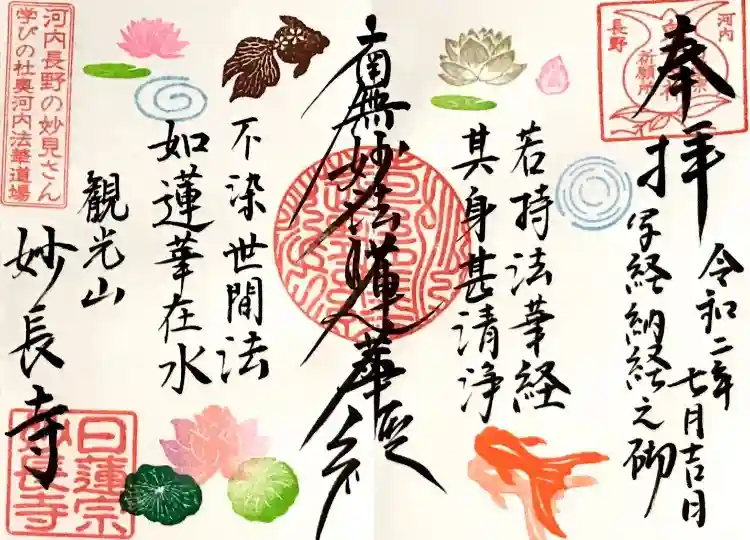 奉拝
令和二年
七月吉日
写経納経之御
河内
長野
祈願所
若持法華経
其身甚清浄
南無妙法蓮華経
不染世間法
如蓮華在水
観光山
妙長寺
河内長野の妙見さん
学びの杜奥河内法華道場
日蓮宗
妙長寺